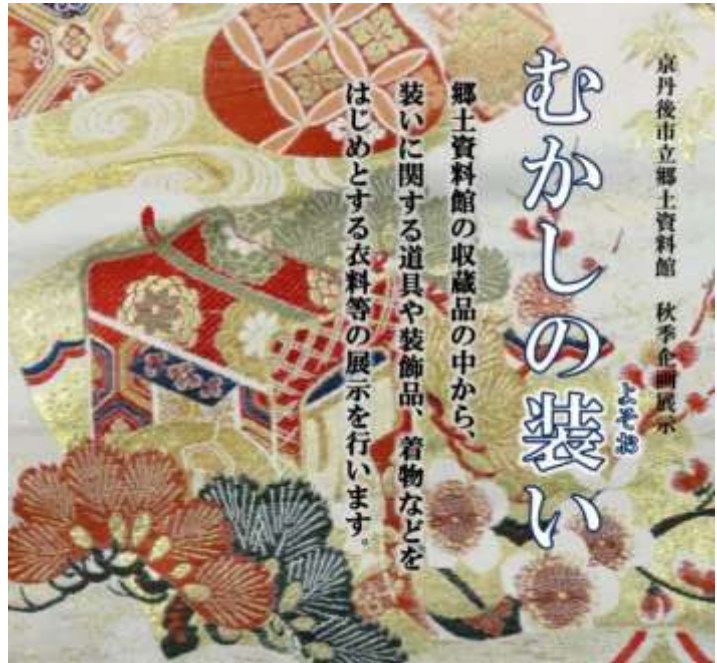 京丹後市立郷土資料館　秋季企画展示
むかしの装い
よそお
郷土資料館の収蔵品の中から、
装いに関する道具や装飾品、着物などを
はじめとする衣料等の展示を行います。